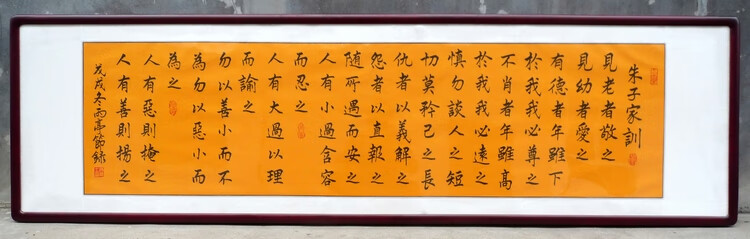 朱子家訓
見老者敬之
見幼者愛之
有德者年雖下
於我我必尊之
不肖者年雖高
於我我必遠之
慎勿談人之短
切莫矜己之長
仇者以義解之
怨者以直報之
随所遇而安之
人有小過含容
而忍之
人有大過以理
而諭之
勿以善小而不
為勿以惡小而
為之
人有惡則掩之
人有善則揚之
戊戌冬雨亭節録